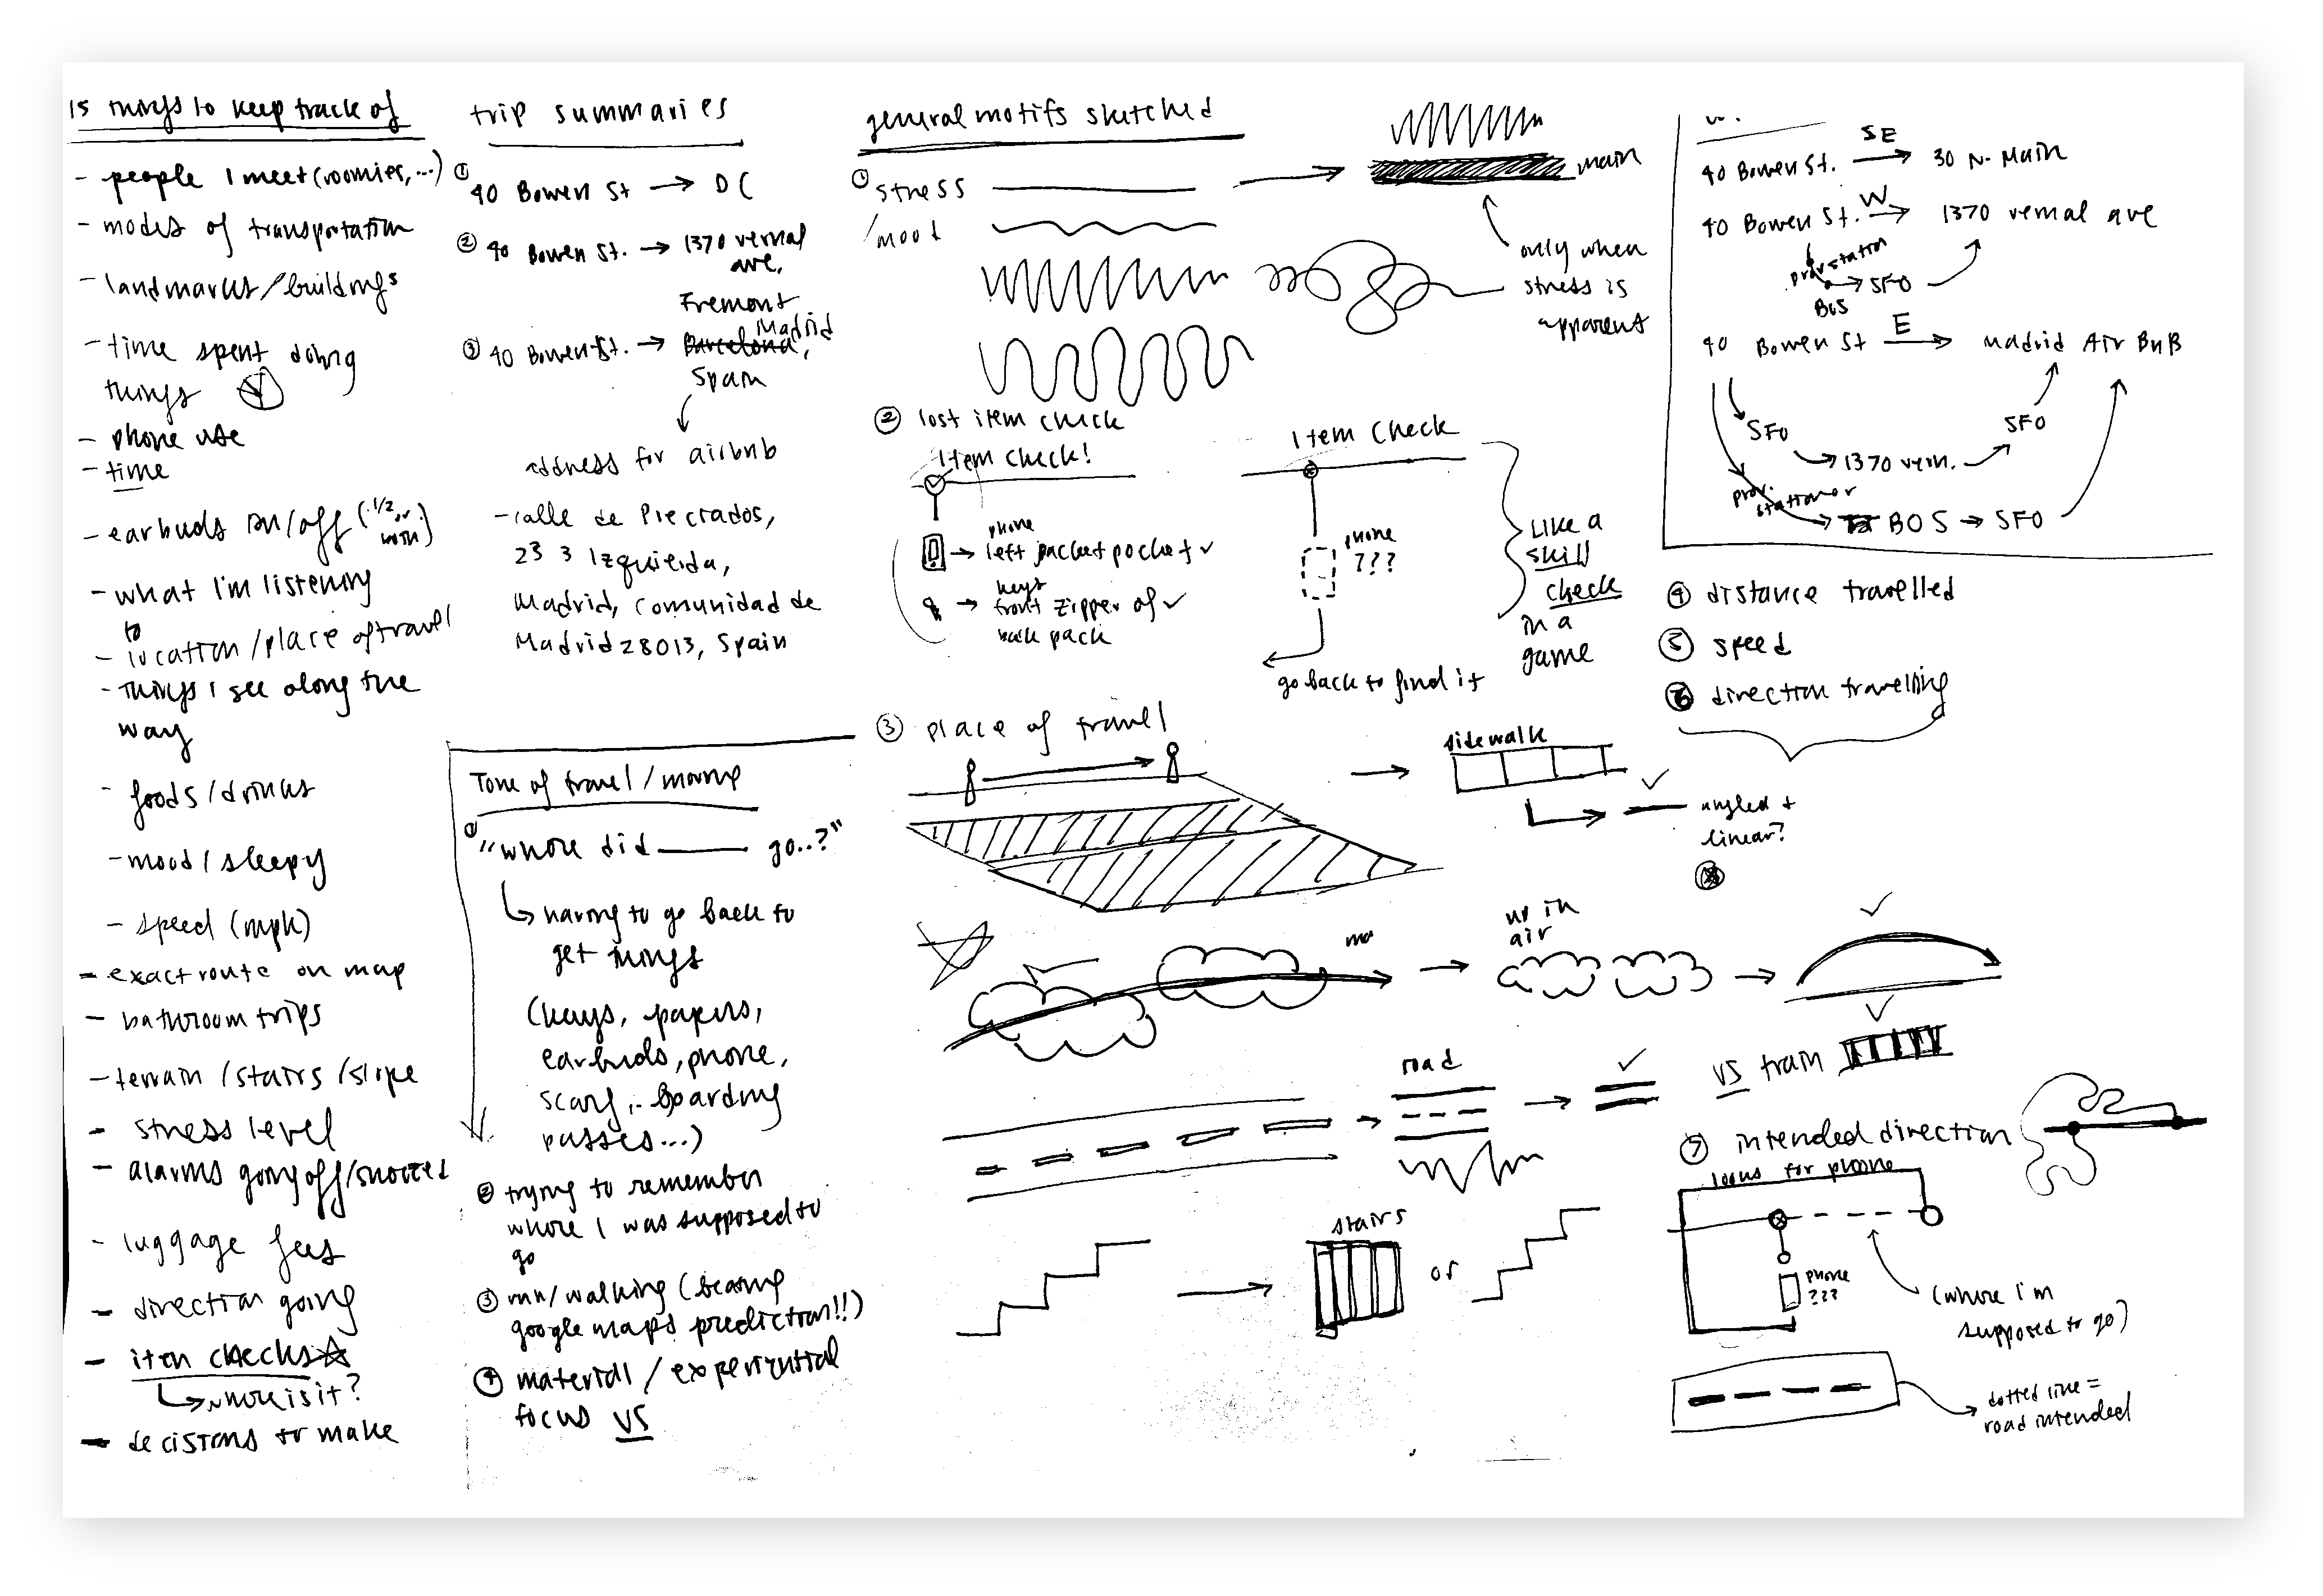 15 things to keep track of
- people I meet (roomies, ...)
- modes of transportation
- landmarks/buildings
- time spent doing
things
- phone use
- time
- earbuds on/off (1/2, or
both)
- what I'm listening
to
- location/place of travel
- things I see along the
way
- foods/drinks
- mood/sleepy
- speed (mph)
- exact route on map
- bathroom trips
- terrain/stairs/slope
- stress level
- alarms going off/snoozed
- luggage fees
- direction going
- item checks
where is it?
- decisions to make
trip summaries
① 40 Bowen St → DC
② 40 Bowen St. → 1370 vernal
ave,
Fremont
③ 40 Bowen St. → Barcelona Madrid,
Spain
address for airbnb
- calle de Preciados,
23 3 Izquierda,
Madrid, Comunidad de
Madrid 28013, Spain
Tone of travel/moving
① "where did ___ go..?"
having to go back to
get things
(keys, papers,
earbuds, phone,
scarf, .. boarding
passes...)
② trying to remember
where I was supposed to
go
③ run/walking (beating
google maps prediction!!)
④ material/experiential
focus vs
general motifs sketched
① stress
/mood
main
only when
stress is
apparent
② lost item check
Item check!
phone
→ left jacket pocket ✓
keys
→ front zipper of ✓
back pack
Item Check
phone
???
go back to find it
Like a
skill
check
in a
game
③ place of travel
sidewalk
angled +
linear?
up in
air
road
vs train
stairs
or
SE
40 Bowen St. → 30 N. Main
W
40 Bowen St. → 1370 vernal ave
prov station
→ SFO
BOS
E
40 Bowen St → madrid Air BnB
SFO
SFO
→ 1370 vern.
prov.
station
→ BOS → SFO
④ distance travelled
⑤ speed
⑥ direction travelling
⑦ intended direction
looks for phone
phone
???
(where I'm
supposed to go)
dotted line =
road intended